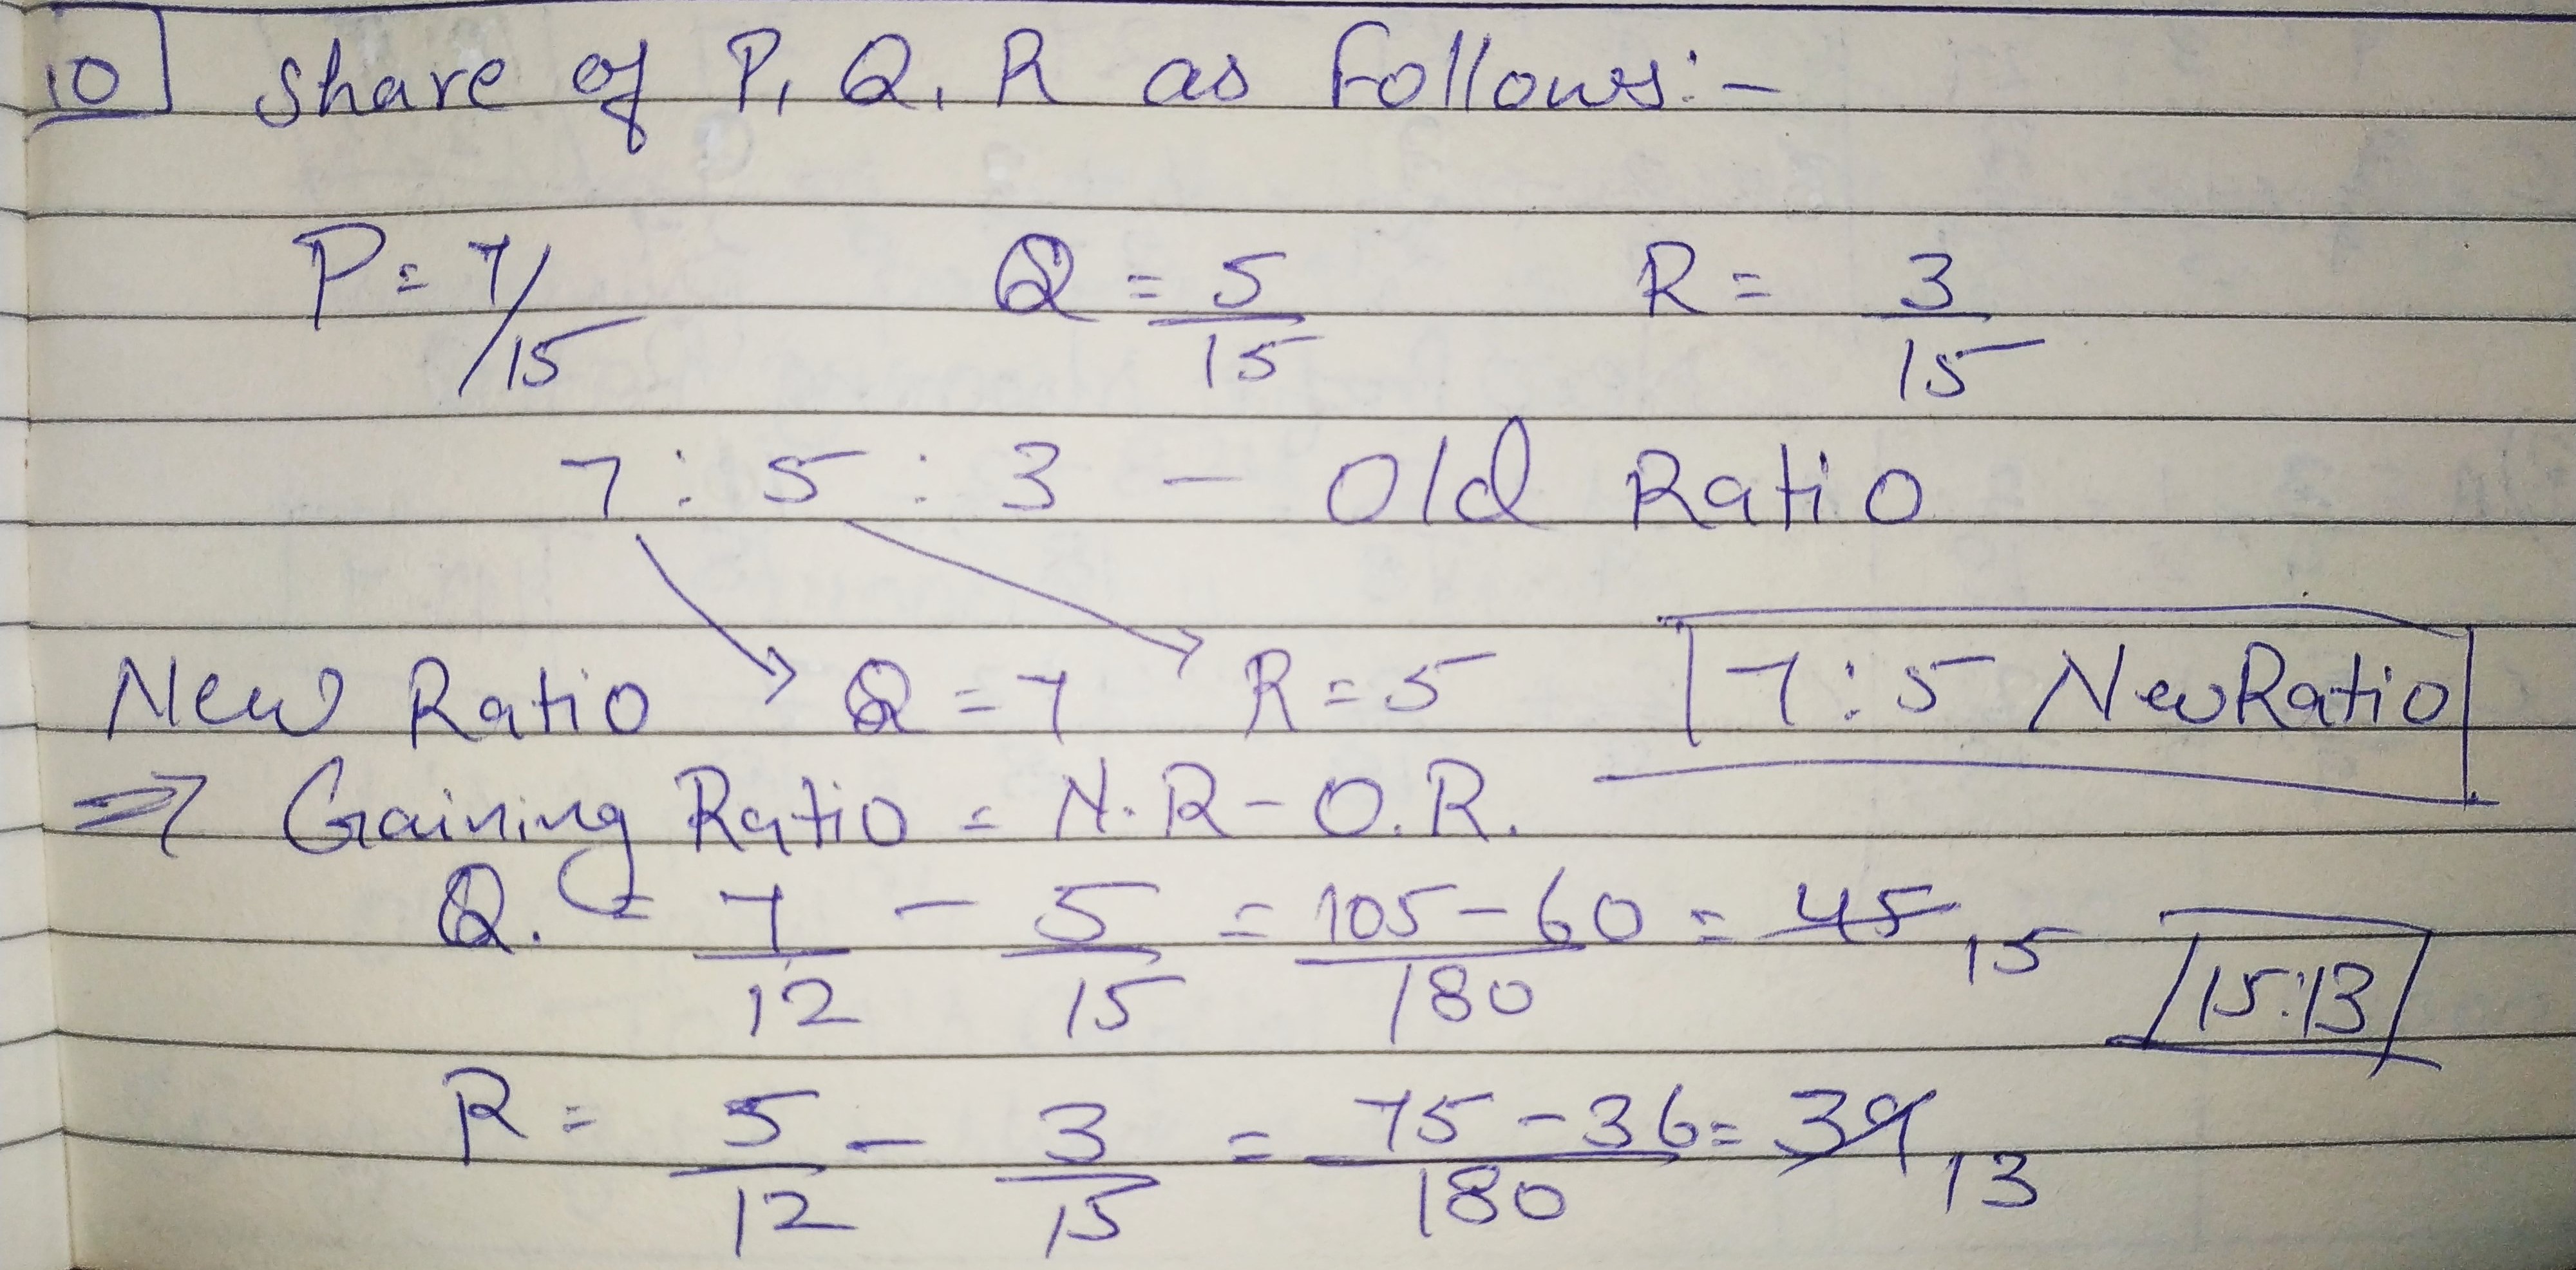 10 Share of P, Q, R as Follows:-
P = 7/15 Q = 5/15 R = 3/15
7 : 5 : 3 - Old Ratio
New Ratio → Q = 7 → R = 5 7 : 5 New Ratio
⇒ Gaining Ratio = N.R - O.R.
Q. = 7/12 - 5/15 = 105-60/180 = 45, 15 15:13
R = 5/12 - 3/15 = 75-36/180 = 39, 13